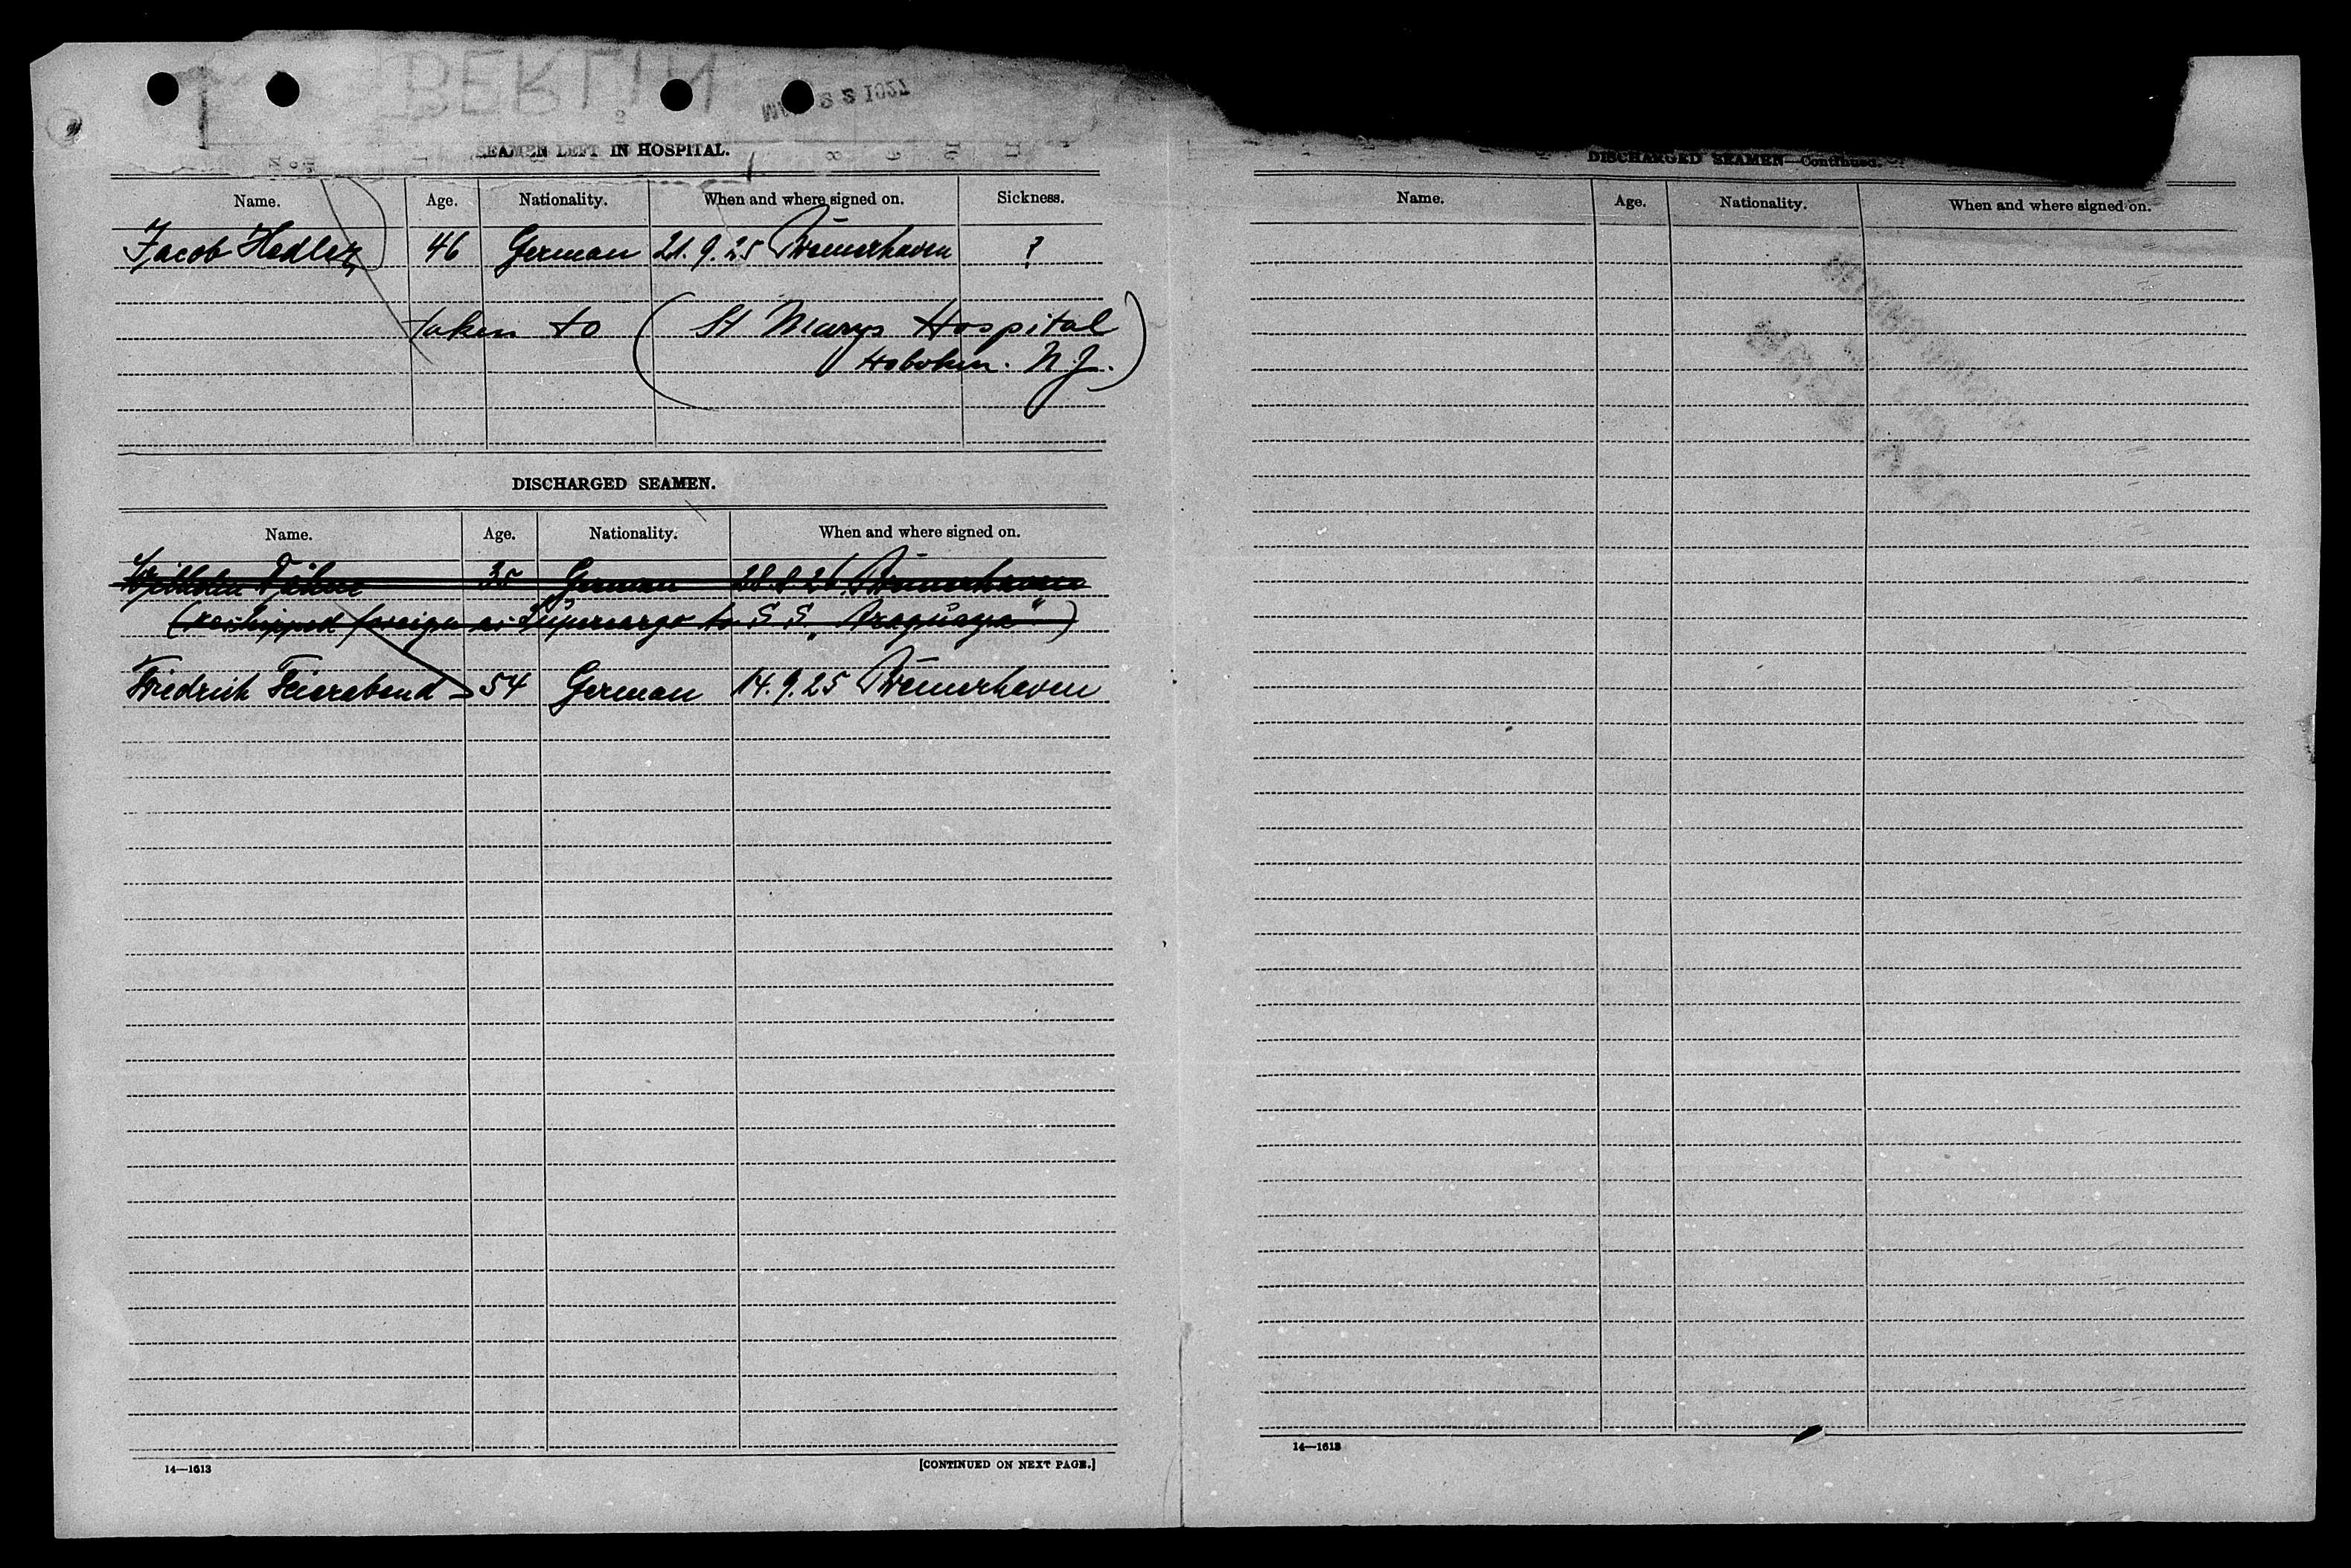 BERLIN
SEAMEN LEFT IN HOSPITAL.
Name. Age. Nationality. When and where signed on. Sickness.
Jacob Hedler 46 German 21.9.25 Bremerhaven ?
taken to ( St Marys Hospital
Hoboken. N.J. )
DISCHARGED SEAMEN.
Name. Age. Nationality. When and where signed on.
Wilhelm 35 German 28.8.26 Bremerhaven
(reshipped foreign as Supercargo to S.S. „Araguaya")
Friedrich Feierabend 54 German 14.9.25 Bremerhaven
14—1613 [CONTINUED ON NEXT PAGE.]
DISCHARGED SEAMEN—Continued.
Name. Age. Nationality. When and where signed on.
14—1613